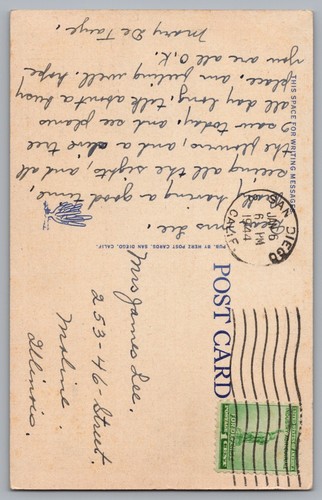 THIS SPACE FOR WRITING MESSAGE
Dear Mrs Lee.
Am having a good time,
seeing all the sights and all
the flowers and a olive tree
I saw today, and see planes
all day long, talk about a busy
place, am feeling well. hope
you are all O.K.
Mary De Taeye.
PUB. BY HERZ POST CARDS, SAN DIEGO, CALIF.
POST CARD
SAN DIEGO
JAN 6
6 PM
1944
CALIF.
1 CENT
Mrs James Lee.
253-46-Street.
Moline.
Illinois.